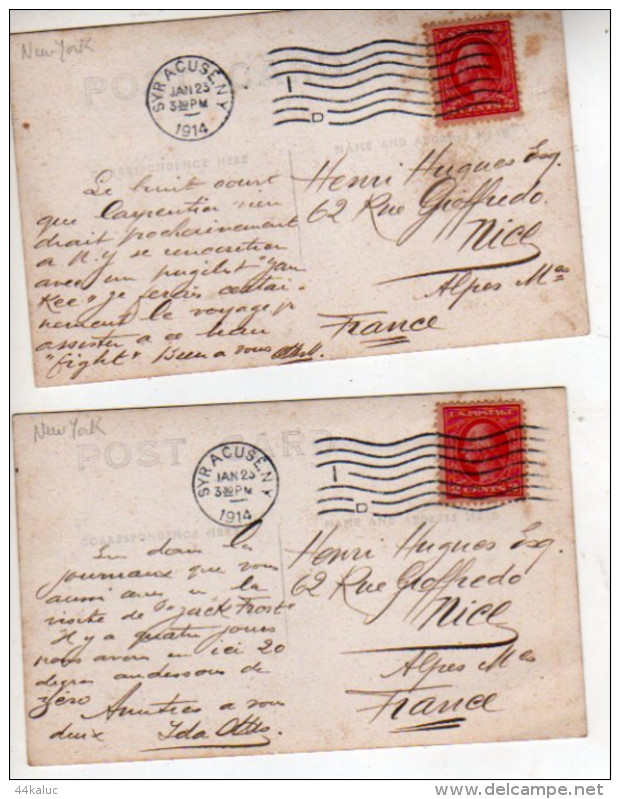 New York
POST CARD
SYRACUSE, N.Y.
JAN 23
3 30 PM
1914
D
CORRESPONDENCE HERE
NAME AND ADDRESS HERE
Le bruit court
que Carpentier vien
drait prochainement
a N.Y se rencontrer
avec un pugilist "Yan
Kee" Je ferais certai-
nement le voyage pr
assister a ce beau
"fight" Bien a vous
Henri Hugues Esq.
62 Rue Gioffredo
Nice
Alpes Mes
France
New York
POST CARD
SYRACUSE, N.Y.
JAN 23
3 30 PM
1914
D
U.S. POSTAGE
CORRESPONDENCE HERE
NAME AND ADDRESS HERE
dans les
journaux que vous
aussi avez eu la
visite de "Jack Frost"
Il y a quatre jours
nous avons eu ici 20
degres au dessous de
zéro
Amities a vous
deux Ida
Henri Hugues Esq.
62 Rue Gioffredo
Nice
Alpes Mes
France
44kaluc
delcampe.net